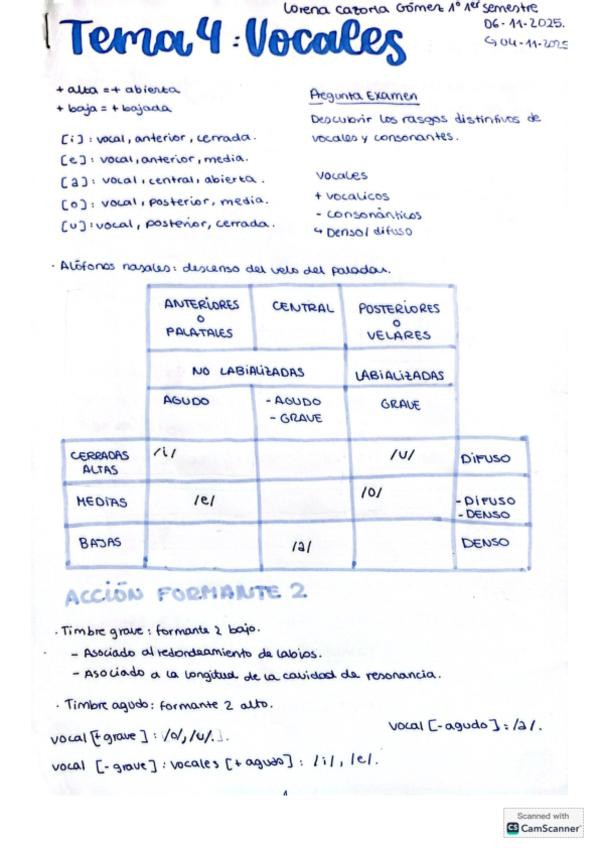 Lorena Cazorla Gómez 1º 1er semestre
06-11-2025.
↳ 04-11-2025
Tema 4: Vocales
+ alta = + abierta
+ baja = + bajada
[i]: vocal, anterior, cerrada.
[e]: vocal, anterior, media.
[a]: vocal, central, abierta.
[o]: vocal, posterior, media.
[u]: vocal, posterior, cerrada.
Pregunta Examen
Descubrir los rasgos distintivos de
vocales y consonantes.
vocales
+ vocalicos
- consonánticos
↳ Denso/difuso
· Alófonos nasales: descenso del velo del paladar.
ANTERIORES
O
PALATALES
CENTRAL
POSTERIORES
O
VELARES
NO LABIALIZADAS
LABIALIZADAS
AGUDO
- AGUDO
- GRAVE
GRAVE
CERRADAS
ALTAS
/i/
/u/
DIFUSO
MEDIAS
/e/
/o/
- DIFUSO
- DENSO
BAJAS
/a/
DENSO
ACCIÓN FORMANTE 2
· Timbre grave: formante 2 bajo.
- Asociado al redondeamiento de labios.
- Asociado a la longitud de la cavidad de resonancia.
· Timbre agudo: formante 2 alto.
vocal [+ grave]: /o/, /u/.
vocal [- agudo]: /a/.
vocal [- grave]: vocales [+ agudo]: /i/, /e/.
Scanned with
CS CamScanner